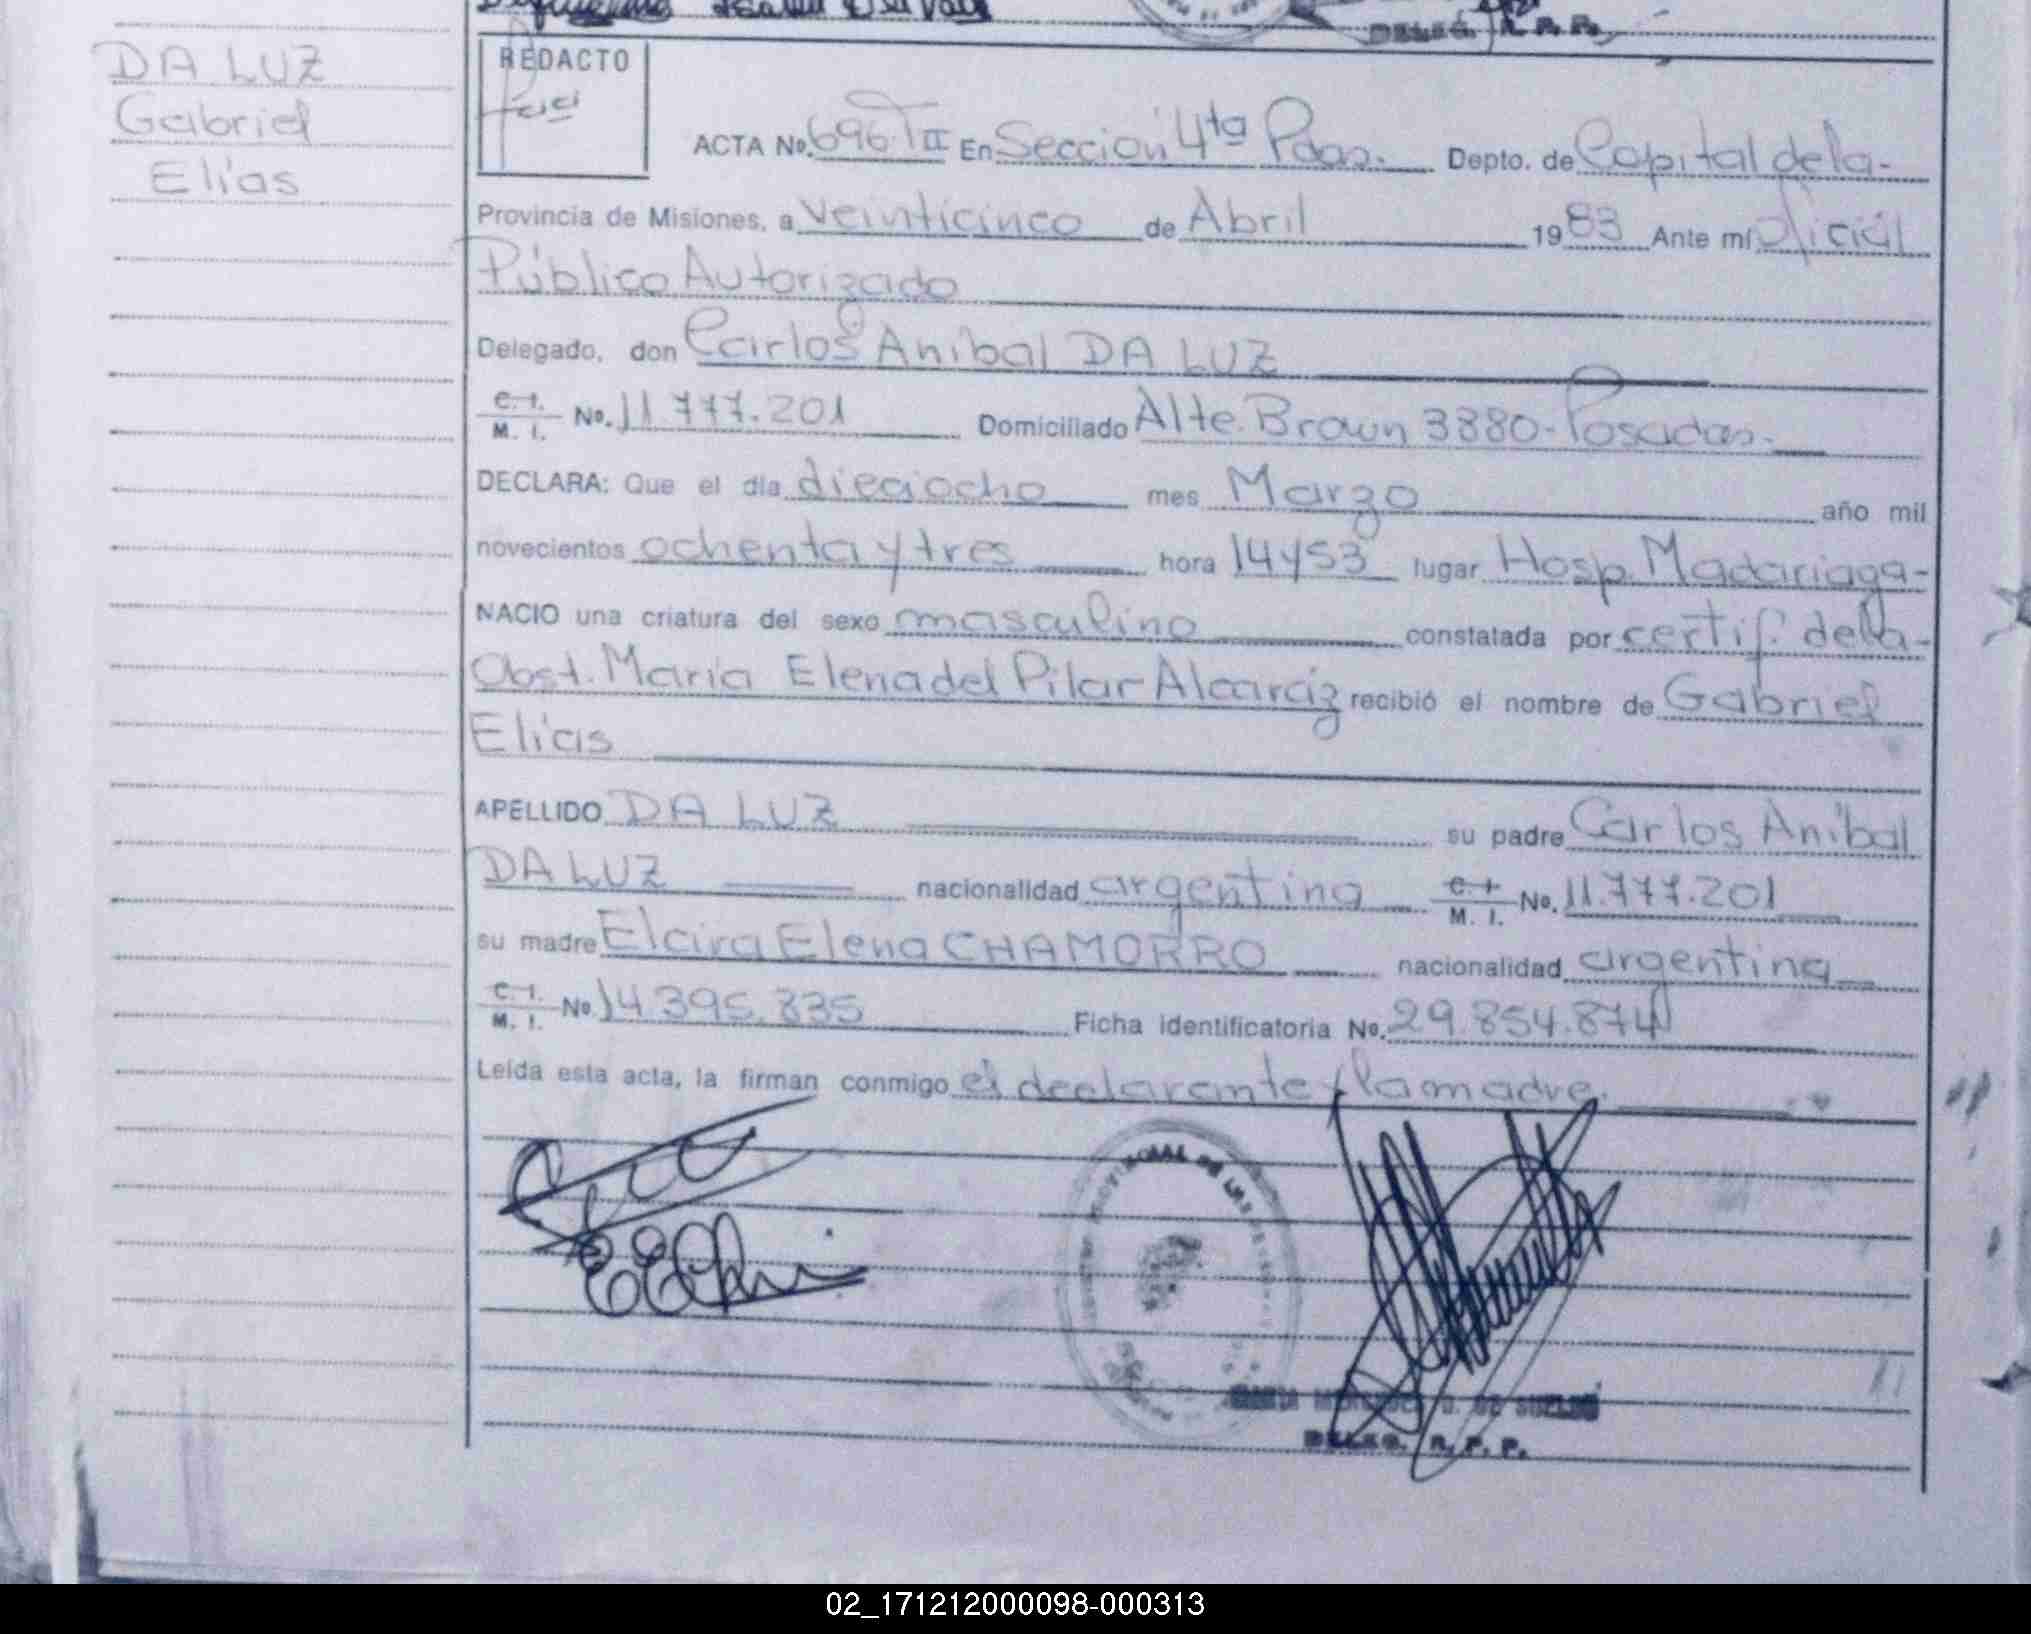 DA LUZ
Gabriel
Elías
REDACTO
ACTA No. 696. T II En Sección 4ta Pdas. Depto. de Capital de la-
Provincia de Misiones, a Veinticinco de Abril 1983 Ante mí Oficial
Público Autorizado
Delegado, don Carlos Anibal DA LUZ
C. I. M. I. No. 11.777.201 Domiciliado Alte. Brown 3880- Posadas.
DECLARA: Que el día dieciocho mes Marzo año mil
novecientos ochenta y tres hora 14 y 53 lugar Hosp. Madariaga-
NACIO una criatura del sexo masculino constatada por certif. de la-
Obst. María Elena del Pilar Alcaráz recibió el nombre de Gabriel
Elías
APELLIDO DA LUZ su padre Carlos Anibal
DA LUZ nacionalidad argentina C. I. M. I. No. 11.777.201
su madre Elcira Elena CHAMORRO nacionalidad argentina
C. I. M. I. No 14.395.835 Ficha identificatoria No. 29.854.874
Leída esta acta, la firman conmigo el declarante y la madre.
DELEG. R. P. P.
02_171212000098-000313